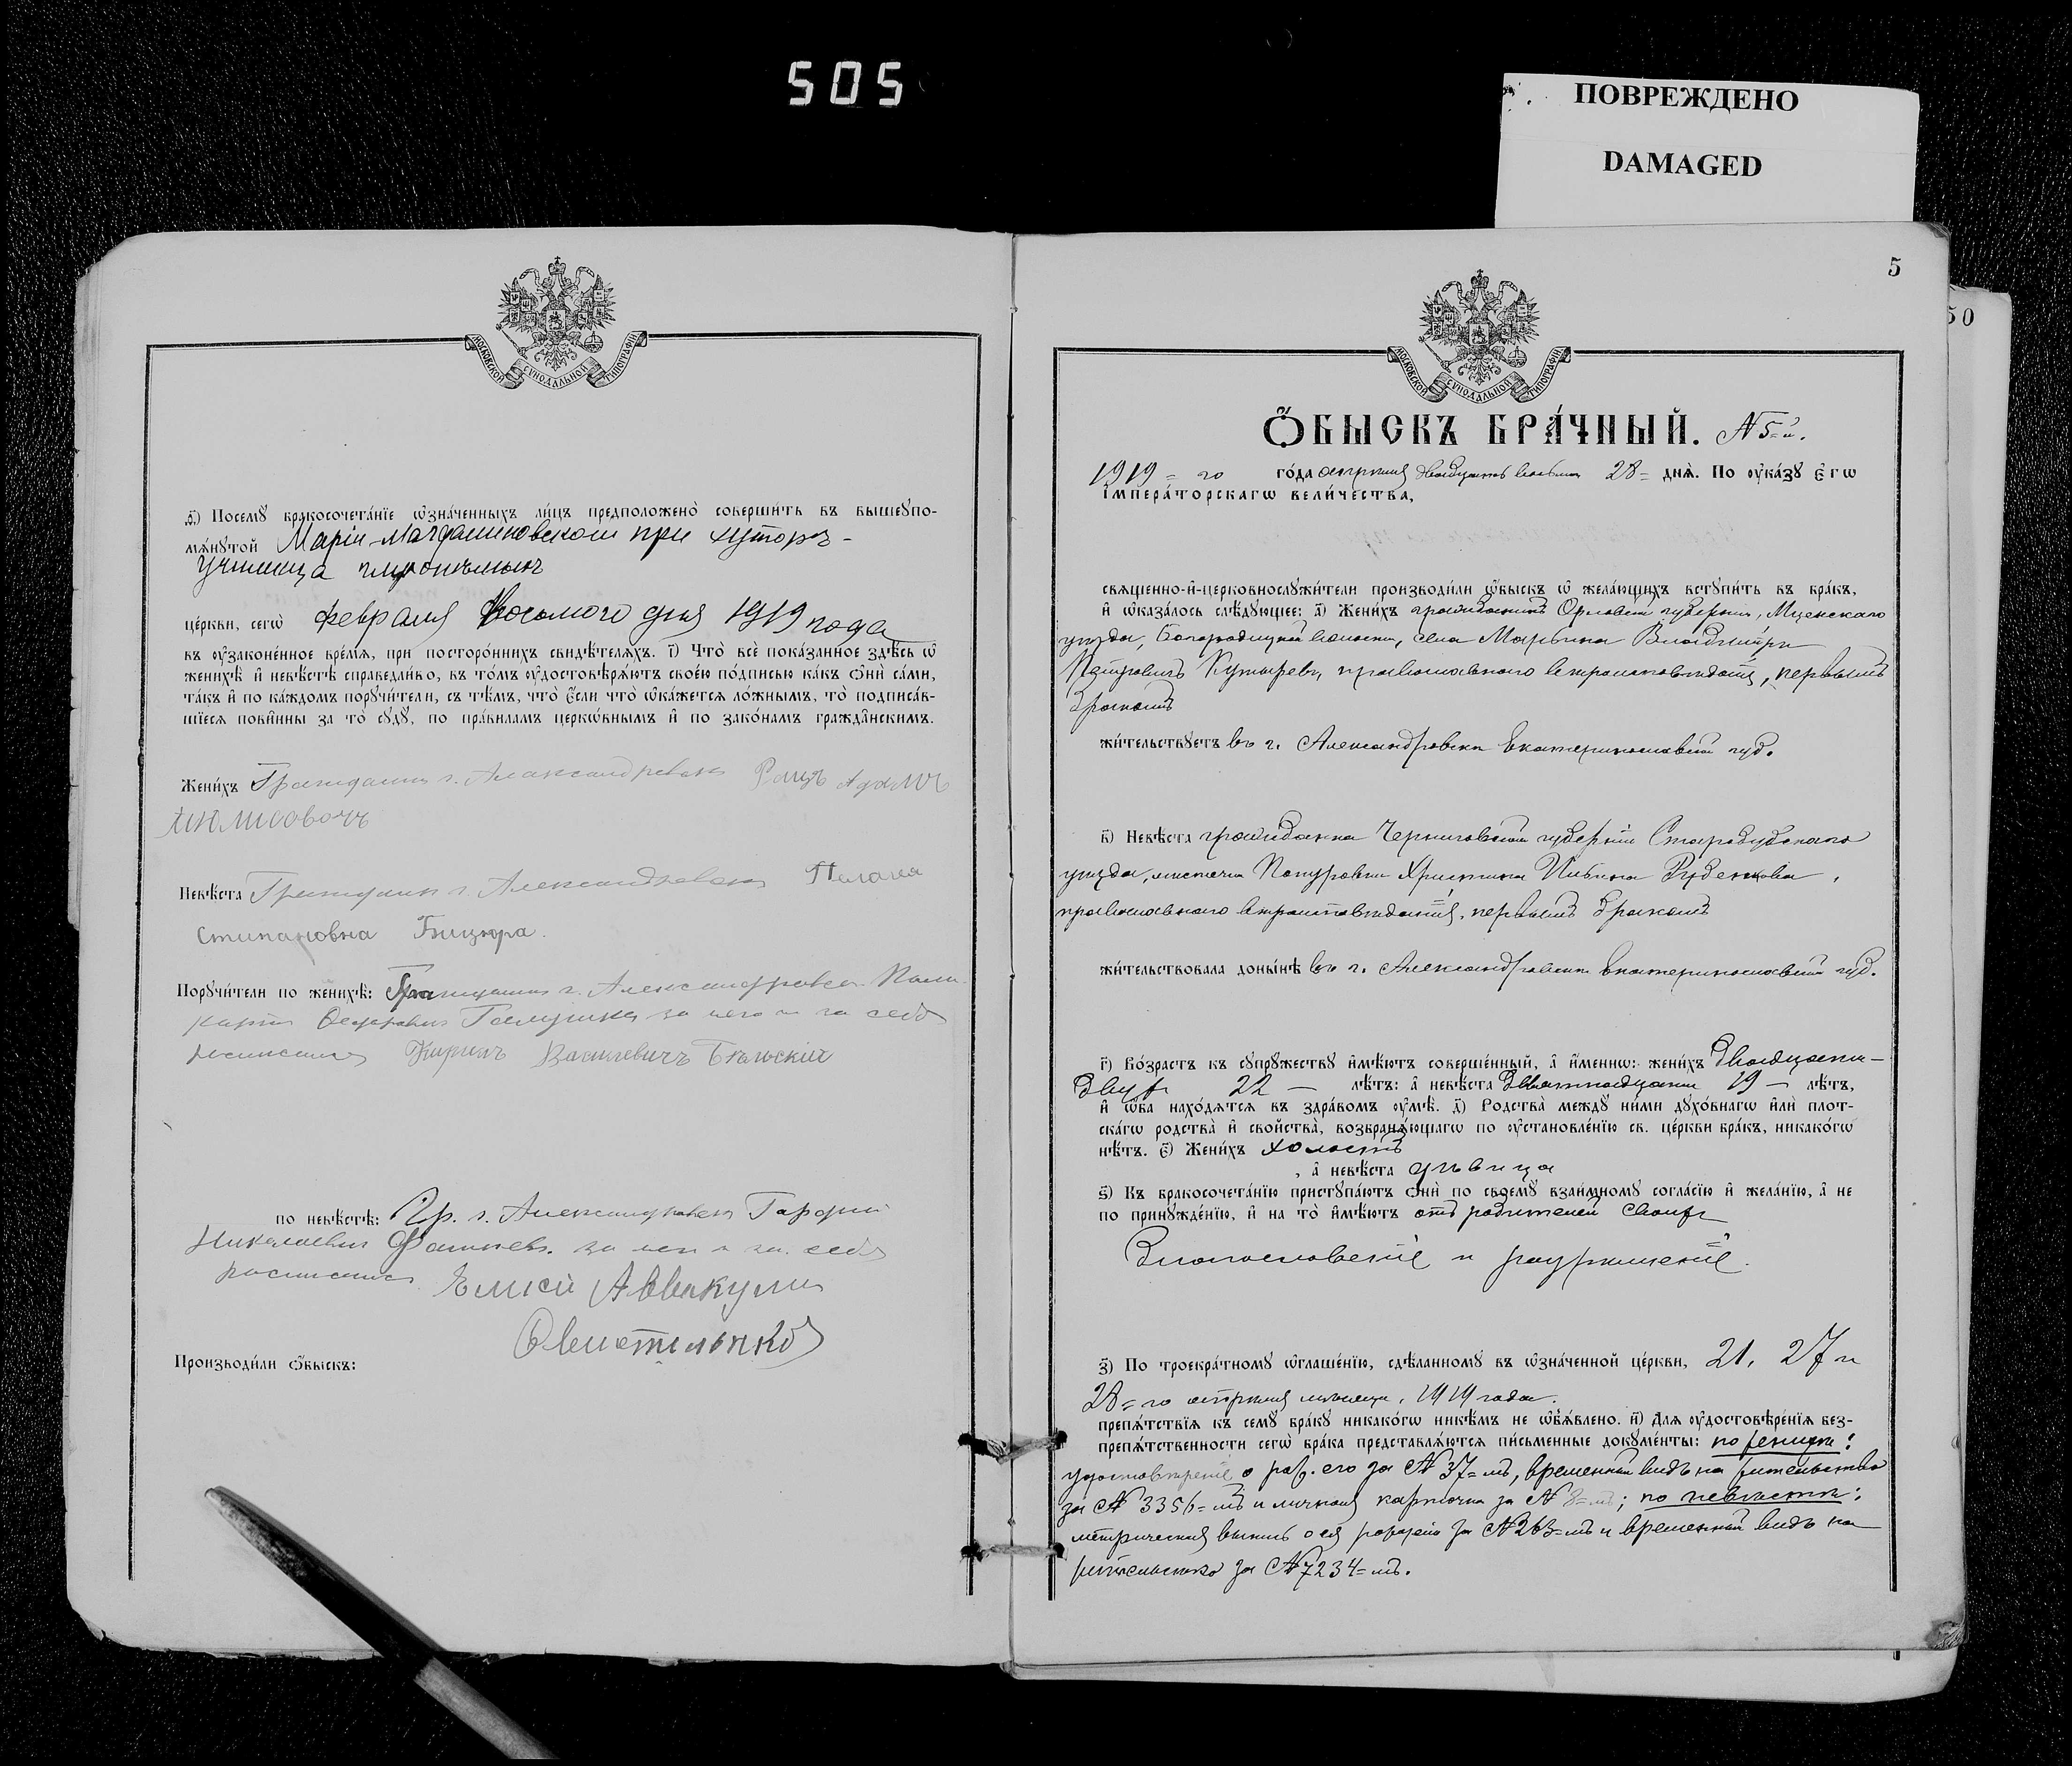 505
ПОВРЕЖДЕНО
DAMAGED
МОСКОВСКОЙ СѴНОДАЛЬНОЙ ТИПОГРАФІИ
ѳ҃) Посемꙋ̀ бракосочета́нїе ѡ҆зна́ченныхъ ли́цъ предположено̀ соверши́ть въ вышеꙋпо-
мѧ́нꙋтой Маріи-Магдалиновской при хуторѣ-
Училища
це́ркви, сегѡ̀ февраля восьмого дня 1919 года
въ ᲂу҆законе́нное вре́мѧ, при посторо́ннихъ свидѣ́телѧхъ. і҃) Что̀ всѐ пока́занное здѣ́сь ѡ҆
женихѣ̀ и҆ невѣ́стѣ справедли́во, въ то́мъ ᲂу҆достовѣрѧ́ютъ свое́ю по́дписью ка́къ ѻ҆нѝ са́ми,
та́къ и҆ по ка́ждомъ порꙋчи́тели, съ тѣ́мъ, что̀ є҆́сли что̀ ѡ҆ка́жетсѧ ло́жнымъ, то̀ подписа́в-
шїесѧ пови́нны за то̀ сꙋдꙋ̀, по пра́виламъ церкѡ́внымъ и҆ по зако́намъ гражда́нскимъ.
Жени́хъ Гражданин г. Александровска Адамъ
Невѣ́ста Гражданка г. Александровска Пелагея
Степановна Бицюра.
Порꙋчи́тели по женихѣ̀: Гражданин г. Александровска Поли-
карпъ Галушка за него и за себя
росписался Кирилъ Василевичъ Бѣльскій
по невѣ́стѣ: Гр. г. Александровска
Николаевич за неи и за себя
росписался Елисей Аввакумъ
Производи́ли ѻ҆́быскъ:
5
50
МОСКОВСКОЙ СѴНОДАЛЬНОЙ ТИПОГРАФІИ
Ѻ҆́БЫСКЪ БРА́ЧНЫЙ. № 5=й.
1919=го го́да апрѣля двадцать восьмого 28= днѧ̀. По ᲂу҆ка́зꙋ Є҆гѡ̀
І҆мпера́торскагѡ вели́чества,
свѧще́нно-и҆-церковнослꙋжи́тели производи́ли ѻ҆́быскъ ѡ҆ жела́ющихъ встꙋпи́ть въ бра́къ,
и҆ ѡ҆каза́лось слѣ́дꙋющее: а҃) Жени́хъ гражданинъ Орловской губерніи, Мценскаго
уѣзда, Богородицкой волости, села Марьина Владимиръ
Петровичъ Кутыревъ, православнаго вѣроисповѣданія, первымъ
бракомъ
жи́тельствꙋетъ въ г. Александровскѣ Екатеринославской губ.
в҃) Невѣ́ста гражданка Черниговской губерніи Стародубскаго
уѣзда, мѣстечка Понуровки Христина Ильина Руденкова,
православнаго вѣроисповѣданія, первымъ бракомъ
жи́тельствовала доны́нѣ въ г. Александровскѣ Екатеринославской губ.
г҃) Во́зрастъ къ сꙋпрꙋ́жествꙋ и҆мѣ́ютъ соверше́нный, а҆ и҆́меннѡ: жени́хъ двадцати-
двухъ 22 — лѣ́тъ: а҆ невѣ́ста девятнадцати 19 — лѣ́тъ,
и҆ ѻ҆́ба нахо́дѧтсѧ въ здра́вомъ ᲂу҆мѣ̀. д҃) Родства̀ междꙋ̀ ни́ми дꙋхо́внагѡ и҆лѝ плот-
ска́гѡ родства̀ и҆ сво́йства̀, возбранѧ́ющагѡ по ᲂу҆становле́нїю св. це́ркви бра́къ, никако́гѡ
нѣ́тъ. є҃) Жени́хъ холостъ
, а҆ невѣ́ста дѣвица
ѕ҃) Къ бракосочета́нїю пристꙋпа́ютъ ѻ҆нѝ по своемꙋ̀ взаи́мномꙋ согла́сїю и҆ жела́нїю, а҆ не
по принꙋжде́нїю, и҆ на то̀ и҆мѣ́ютъ отъ родителей своихъ
благословеніе и разрѣшеніе.
з҃) По троекра́тномꙋ ѡ҆глаше́нїю, сдѣ́ланномꙋ въ ѡ҆зна́ченной це́ркви, 21, 27 и
28=го апрѣля мѣсяца, 1919 года.
препѧ́тствїѧ къ семꙋ̀ бра́кꙋ никако́гѡ никѣ́мъ не ѡ҆б̾ѧ́влено. и҃) Длѧ ᲂу҆достовѣре́нїѧ без-
препѧ́тственности сегѡ̀ бра́ка представлѧ́ютсѧ пи́сьменные докꙋме́нты: по женихѣ:
удостовѣреніе о рож. его за № 37=мъ, временный видъ на жительство
за № 3356=мъ и личная карточка за № 8=мъ; по невѣстѣ:
метрическая выпись о ея рожденіи за № 263=мъ и временный видъ на
жительство за № 7234=мъ.